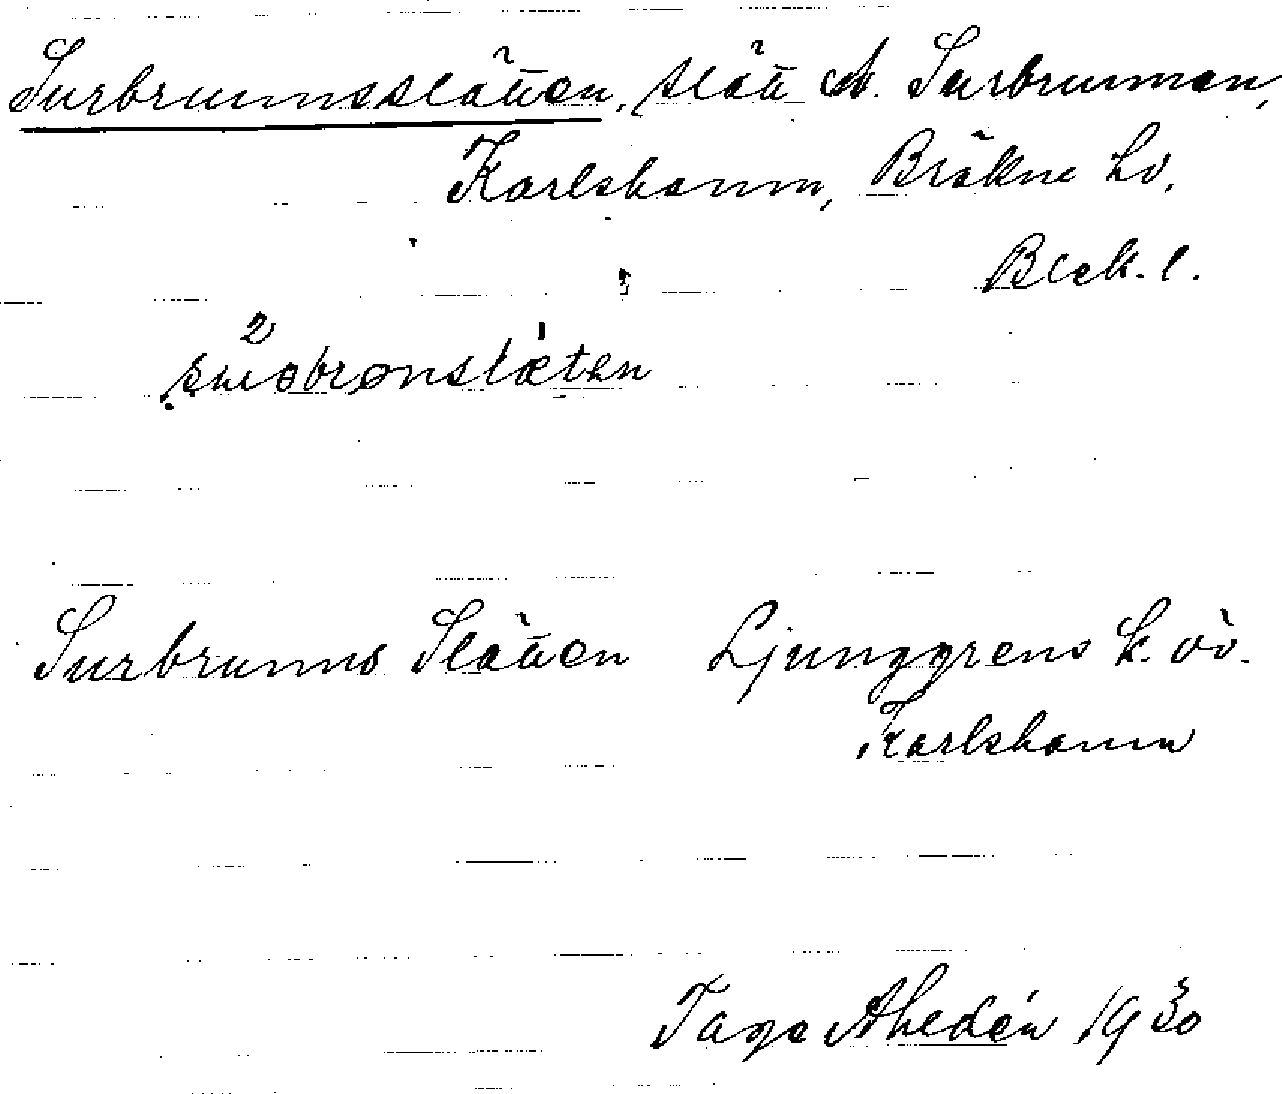 Surbrunnsslätten, slätt A. Surbrunnen,
Karlshamn, Bräkne hd,
Blek. l.
Surbrunns Slätten Ljunggrens k. öv.
Karlshamn
Tage Ahldén 1930